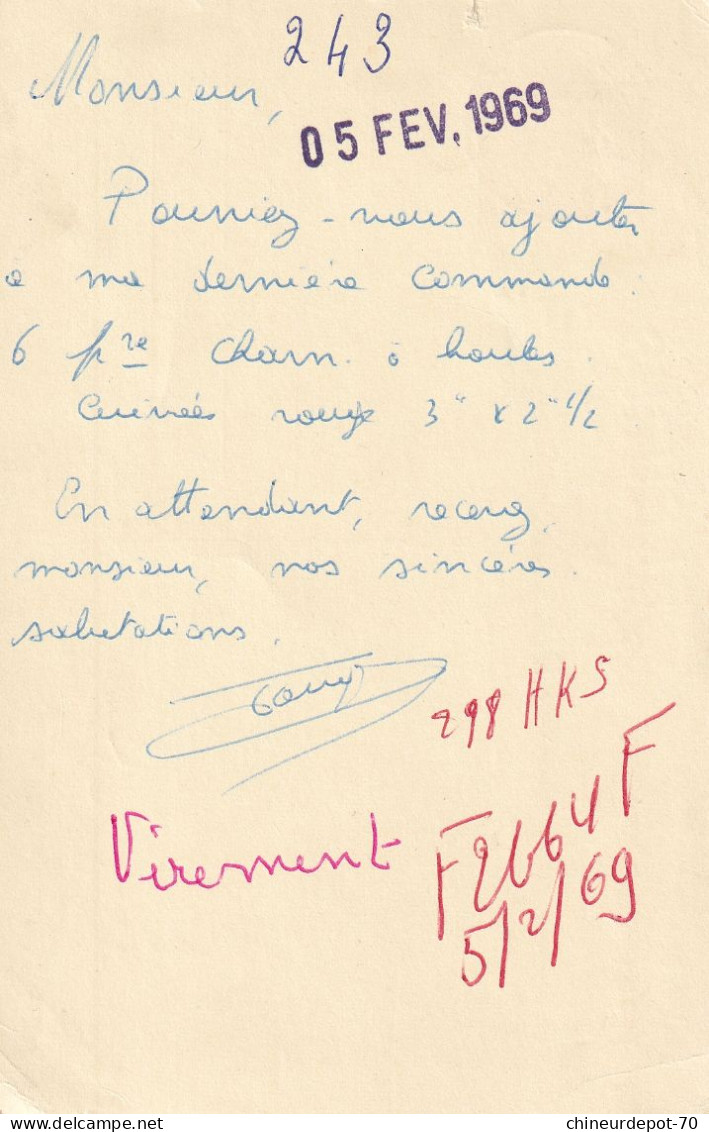 243
Monsieur,
05 FEV. 1969
Pourriez-nous ajouter
à ma dernière commande :
6 pre Charn. à boules
Cuivrés rouge 3" x 2" 1/2
En attendant, recevez,
monsieur, nos sincères
salutations.
298 HKS
Virement
F2664F
5/2/69
chineurdepot-70